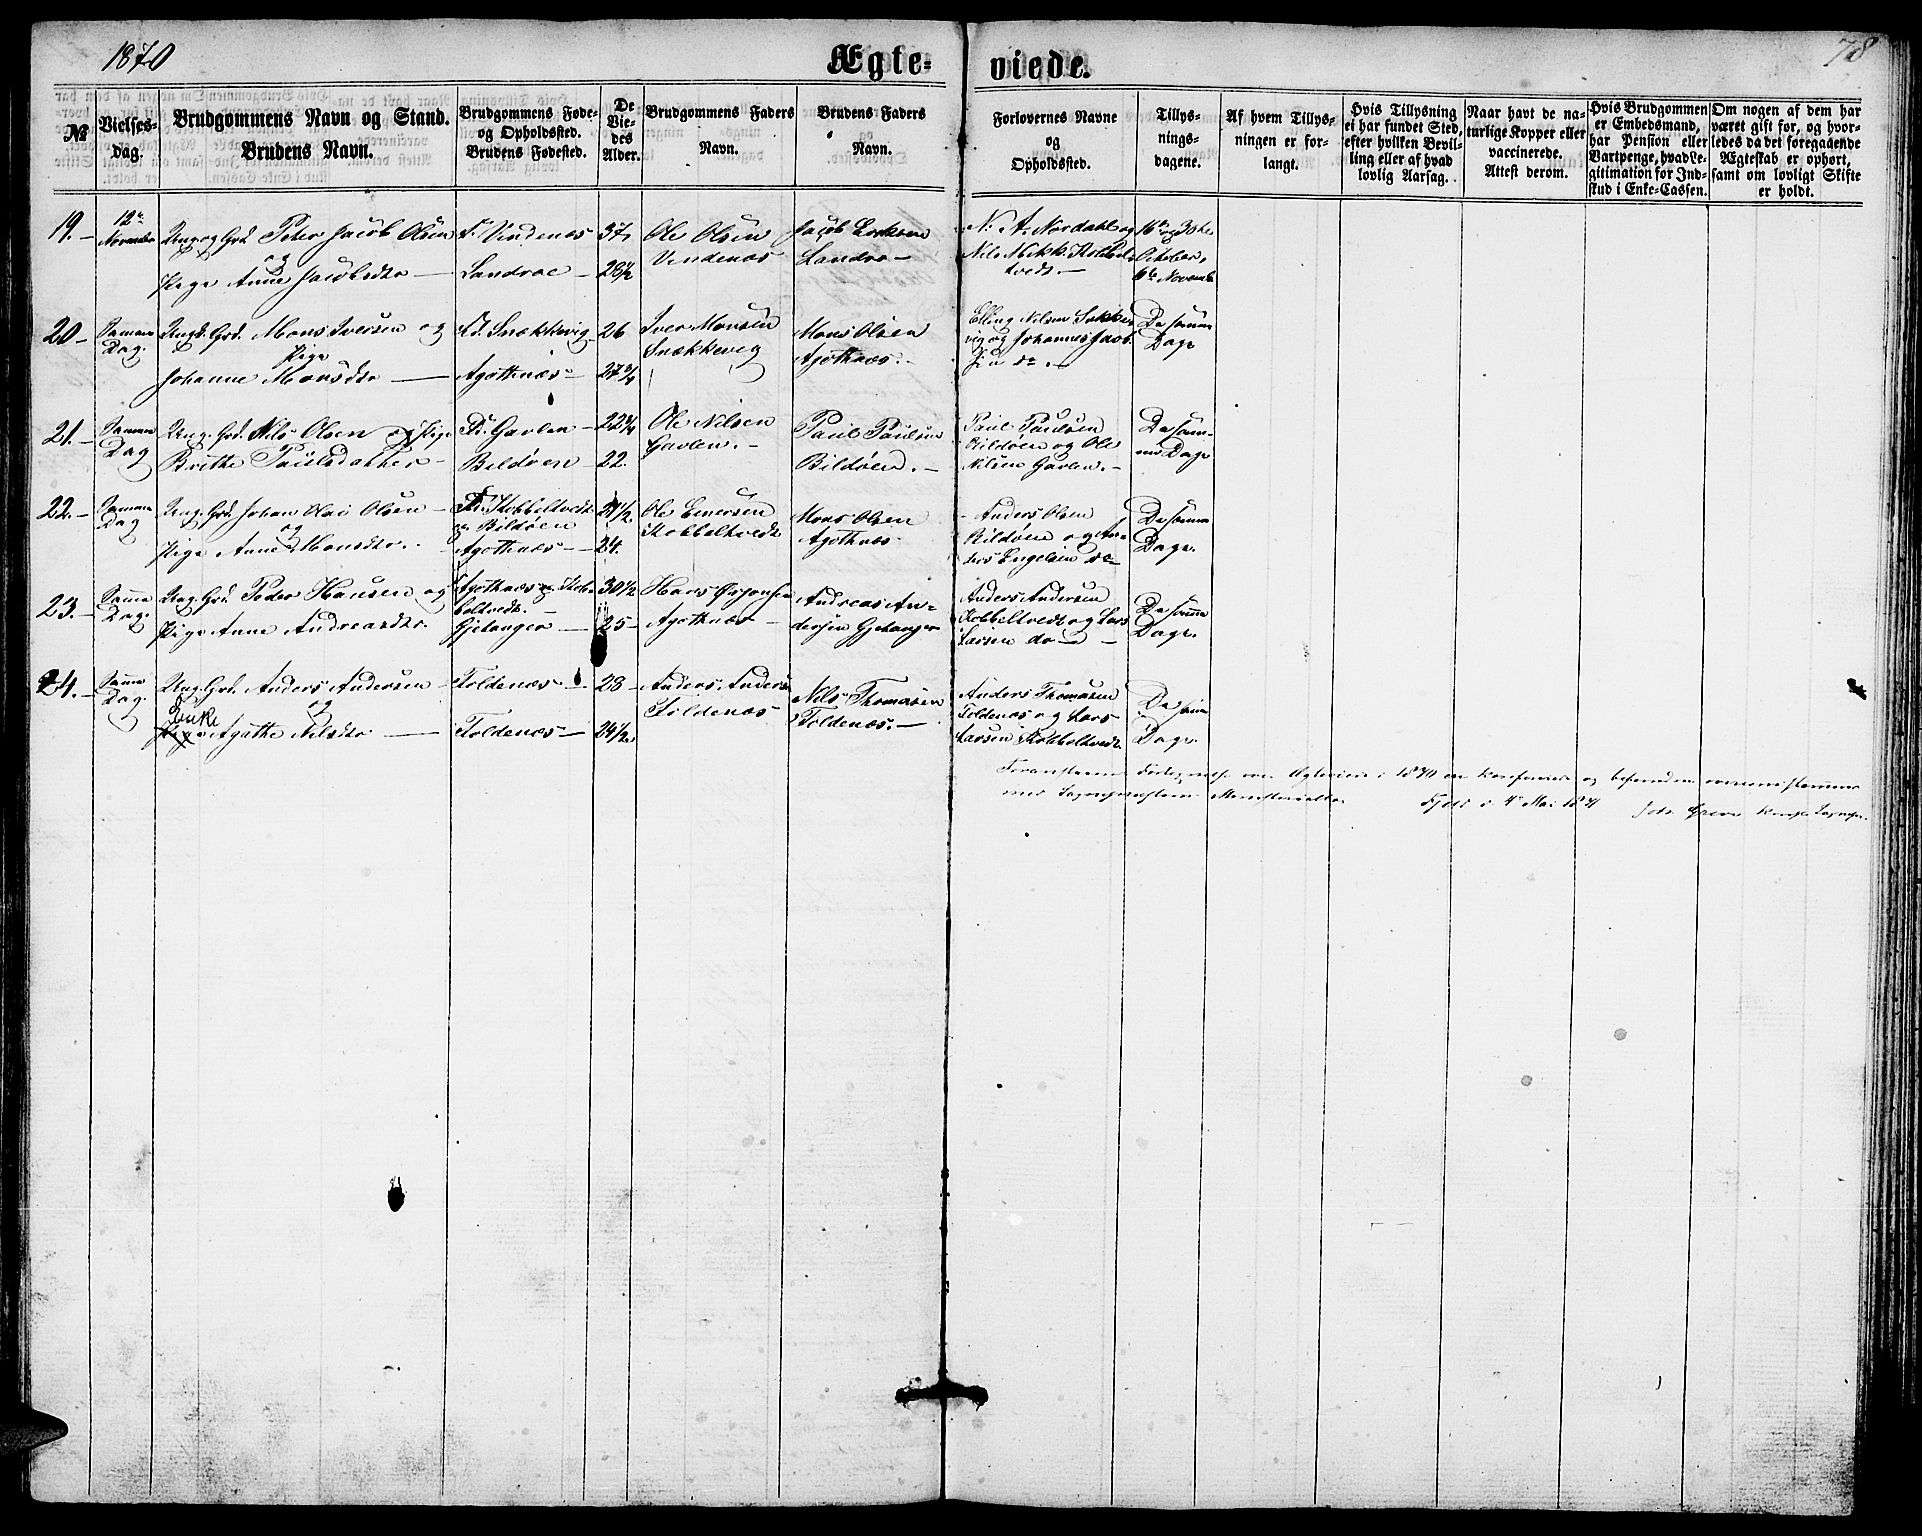 1870
Ægte-
viede.
78
№
Vielses-
dag.
Brudgommens Navn og Stand.
Brudens Navn.
Brudgommens Føde-
og Opholdssted.
Brudens Fødested.
De
Vie-
des
Alder.
Brudgommens Faders
Navn.
Brudens Faders
Navn.
Forlovernes Navne
og
Opholdssted.
Tillys-
nings-
dagene.
Af hvem Tillys-
ningen er for-
langt.
Hvis Tillysning
ei har fundet Sted,
efter hvilken Bevil-
ling eller af hvad
lovlig Aarsag.
Naar havt de na-
turlige Kopper eller
vaccinerede.
Attest derom.
Hvis Brudgommen
er Embedsmand,
har Pension eller
Vartpenge, hvad Le-
gitimation for Ind-
skud i Enke-Cassen.
Om nogen af dem har
været gift for, og hvor-
ledes da det foregaaende
Ægteskab er ophørt,
samt om lovligt Skifte
er holdt.
19.
12te
November
Ung. og Grd. Peter Jacob Olsen
og
Pige Anne Jacobsdtr
Vindenes
Landroe
37
28 1/2
Ole Olsen
Vindenes
Jacob
Landro
N. A. Nordahl og
Nils Mikk. Kobbel-
tvedt.
16de og 30te
October,
6te Novemb.
20
Samme
Dag.
Ung. Grd. Mons Iversen og
Pige
Johanne Monsdtr
Fd. Snækkevig
Agothnæs
26
27 3/4
Iver Monsen
Snækkevig
Mons Olsen
Agothnæs.
Elling Nilsen
vig og Johannes Jacob.
De samme
Dage
21.
Samme
Dag
Ung. Grd. Nils Olsen og Pige
Brithe Paulsdatter
Fd. Gavlen
Bildøen
22 3/4
22.
Ole Nilsen
Gavlen.
Paul Paulsen
Bildøen.
Paul Paulsen
Bildøen og Ole
Nilsen Gavlen.
De sam-
me Dage
22.
Samme
Dag
Ung. Grd. Johan Olai Olsen
og
Pige Anne Monsdtr.
Fd. Kobbeltvedt
Bildøen
Agothnæs
21 1/2.
24.
Ole
Kobbeltvedt
Mons Olsen
Agothnæs
Anders Olsen
Bildøen og An-
ders Engelsen do
De samme
Dage.
23.
Samme
Dag.
Ung. Grd. Peder Hansen og
Pige Anne Andreasdtr.
Agothnæs og Kob-
beltvedt.
Gjetanger
30 1/2
25
Hans Ørjansen
Agothnæs
Andreas An-
dersen Gjetanger
Anders Andersen
Kobbeltvedt og Lars
Larsen do
De samme
Dage.
24.
Samme
Dag.
Ung. Grd. Anders Andersen
og
Enke
Pige Agathe Nilsdtr
Foldenæs
Foldenæs
28
24 1/2.
Anders Andersen
Foldenæs
Nils Thomasen
Foldenæs.
Anders Thomasen
Foldenæs og Lars
Larsen Kobbeltvedt.
De samme
Dage.
Foranstaaende Fortegnelse over Ægteviede i 1870 er konfereret og befunden overensstemmende
med Sognepræstens Ministerialbog
Fjeld d. 4de Mai 1871